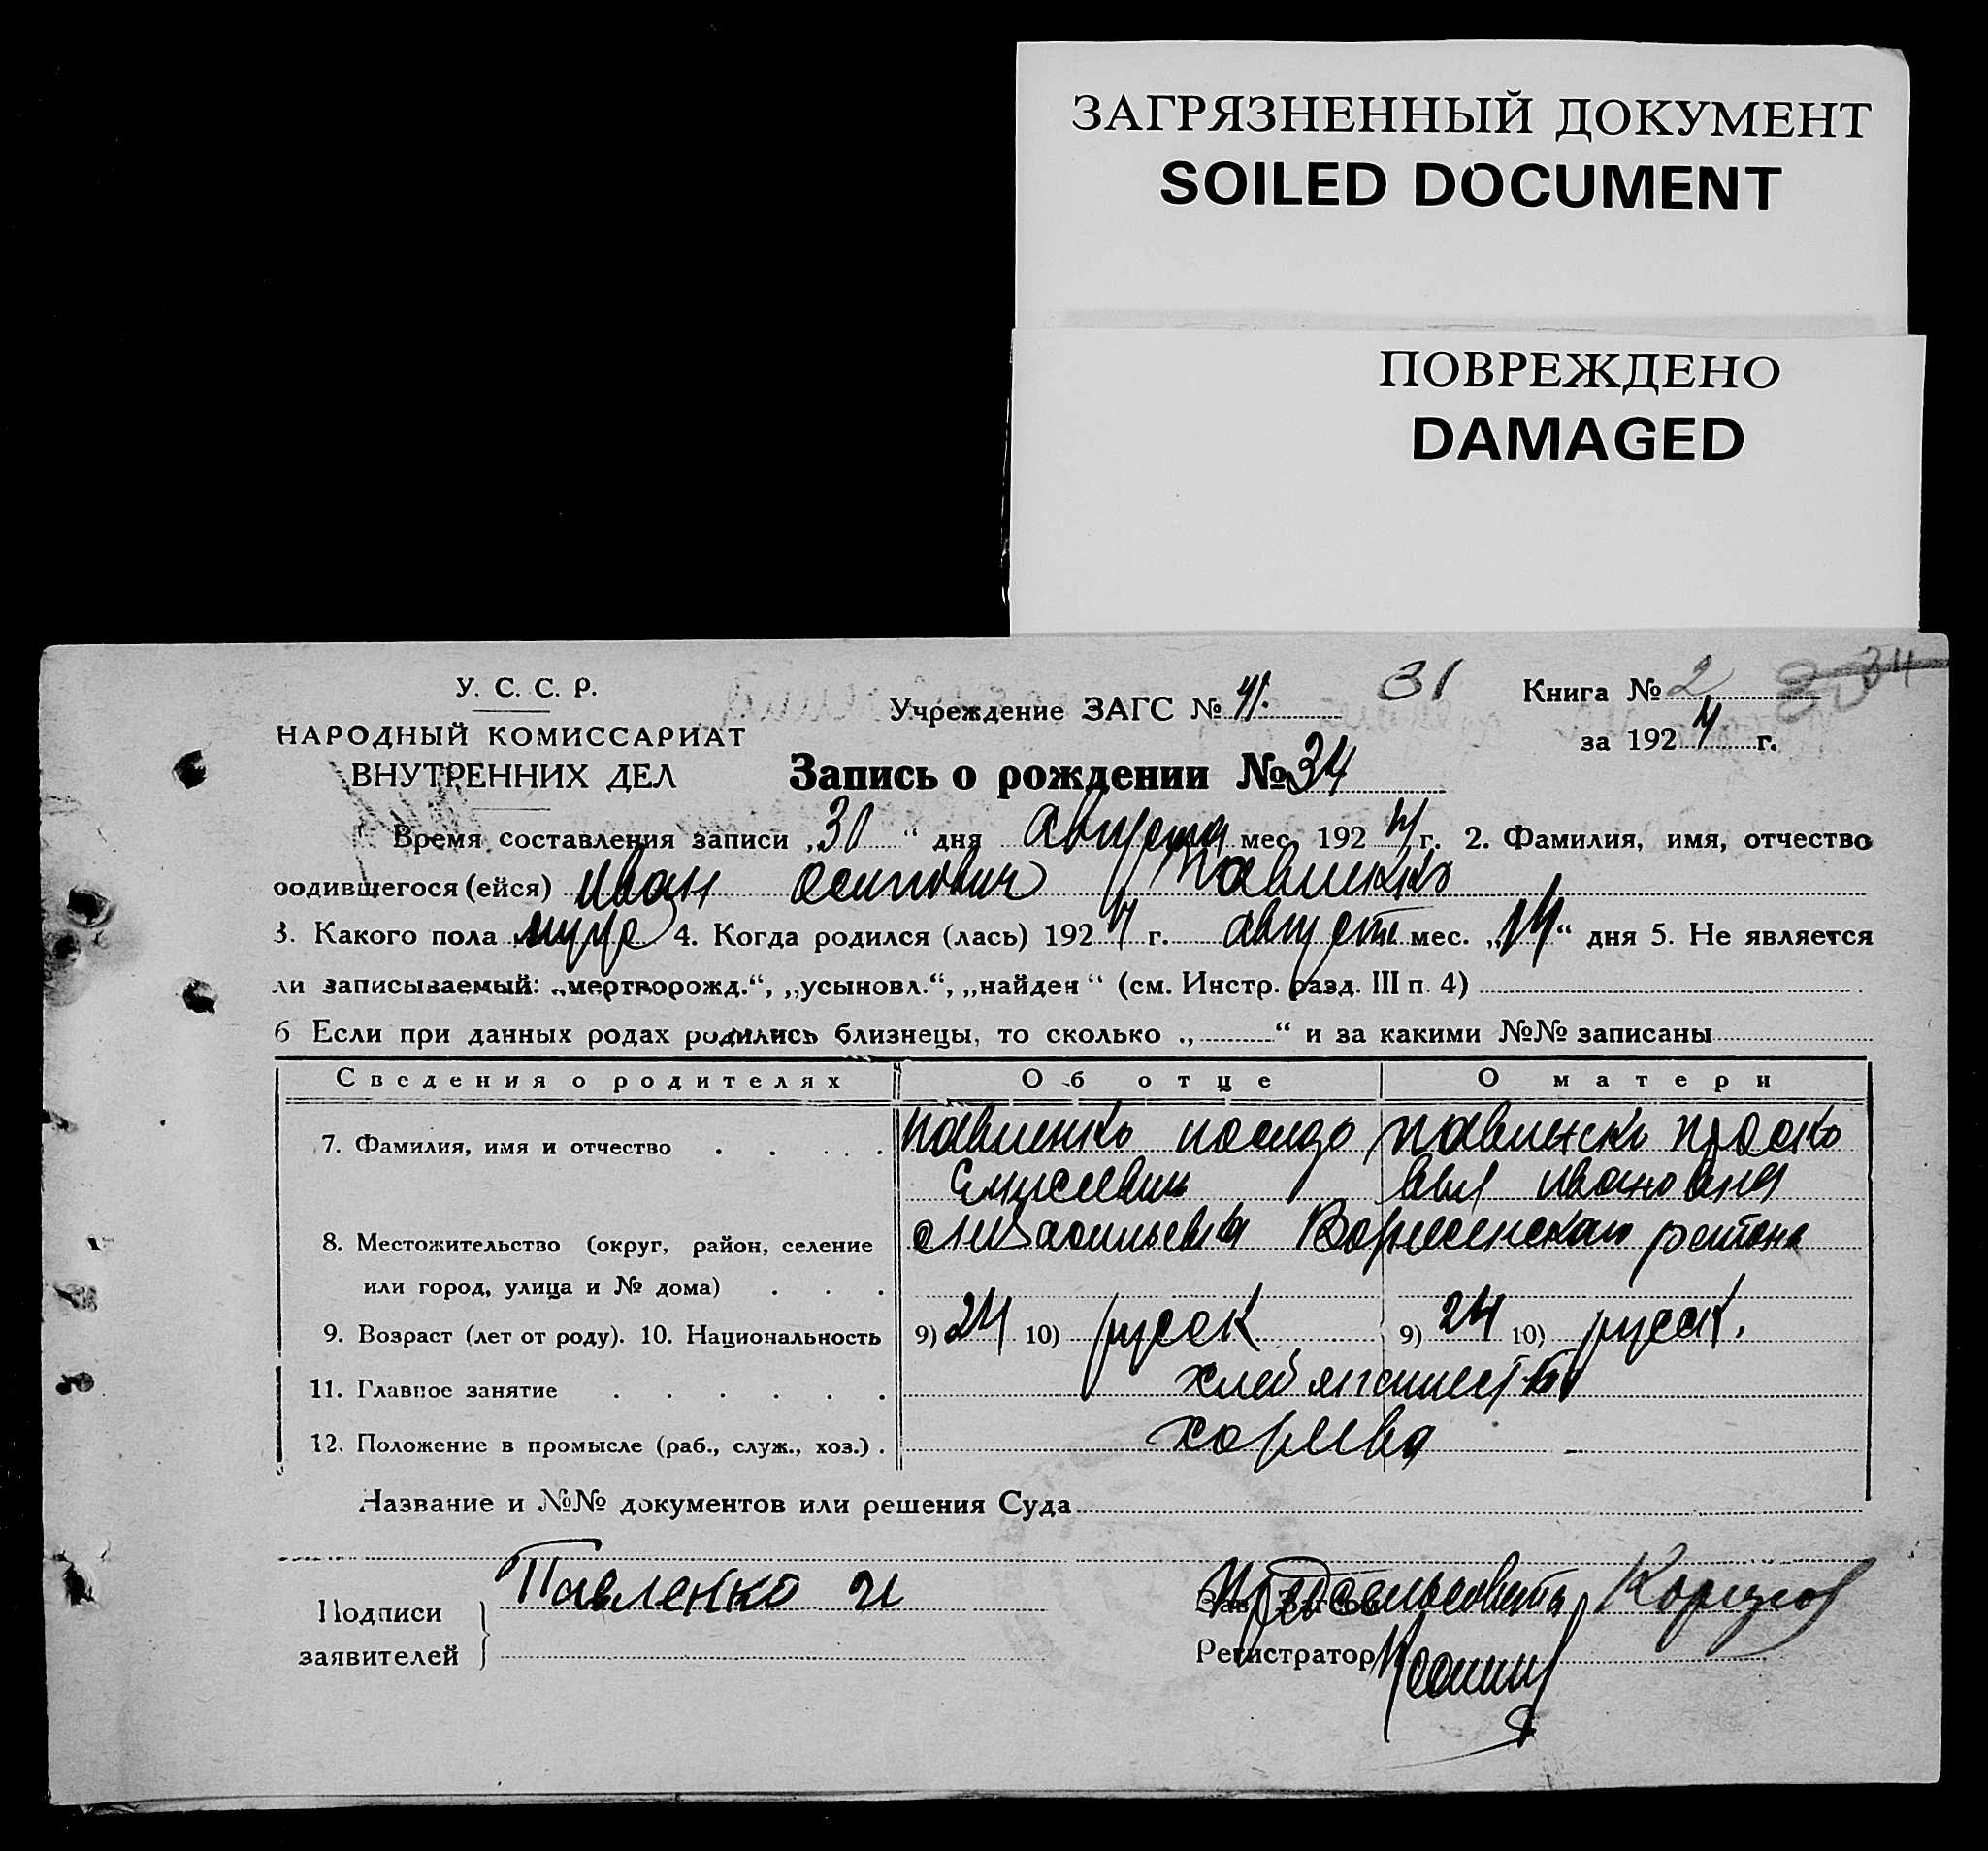 ЗАГРЯЗНЕННЫЙ ДОКУМЕНТ
SOILED DOCUMENT
ПОВРЕЖДЕНО
DAMAGED
У. С. С. Р.
НАРОДНЫЙ КОМИССАРИАТ
ВНУТРЕННИХ ДЕЛ
Учреждение ЗАГС № 4. 31
Книга № 2 34
за 1924 г.
Запись о рождении № 34
Время составления записи „30“ дня Августа мес. 1924 г. 2. Фамилия, имя, отчество
родившегося (ейся) Иван Осипович Павленко
3. Какого пола муж 4. Когда родился (лась) 1924 г. август мес. „14“ дня 5. Не является
ли записываемый: „мертворожд.“, „усыновл.“, „найден“ (см. Инстр. разд. III п. 4)
6 Если при данных родах родились близнецы, то сколько „ “ и за какими №№ записаны
Сведения о родителях Об отце О матери
7. Фамилия, имя и отчество . . . . . Павленко Павленко Праско
вья Ивановна
8. Местожительство (округ, район, селение
или город, улица и № дома) . . . района
9. Возраст (лет от роду). 10. Национальность 9) 24 10) русск 9) 24 10) русск.
11. Главное занятие . . . . . .
12. Положение в промысле (раб., служ., хоз.) .
Название и №№ документов или решения Суда
Подписи
заявителей
Павленко И
Регистратор